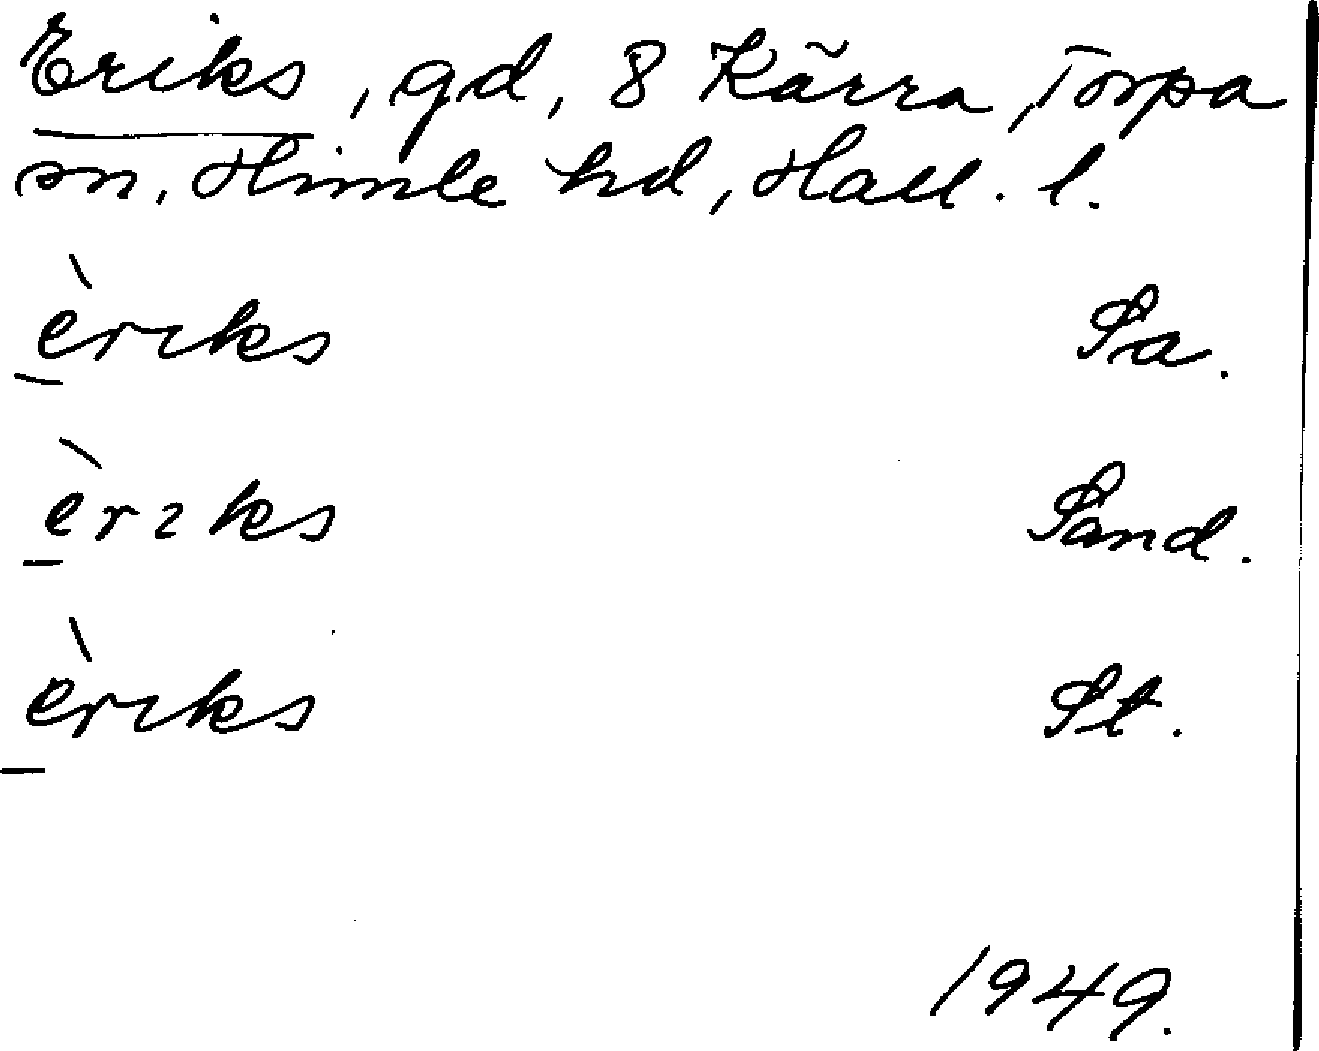 Eriks, gd, 8 Kärra, Torpa
sn, Himle hd, Hall. l.
èrɩks Sa.
èrɩks Sand.
èrɩks St.
1949.